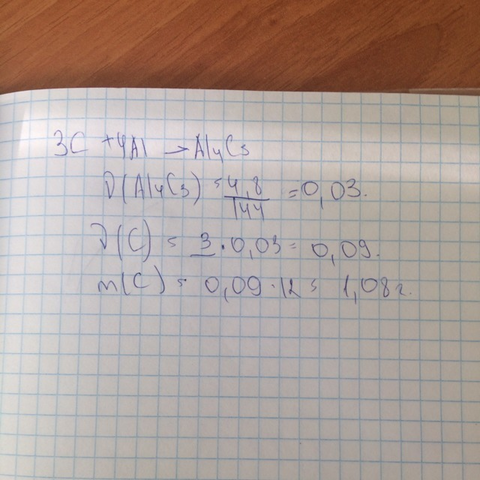 3C + 4Al → Al4C3
ν(Al4C3) = 4,8/144 = 0,03.
ν(C) = 3 · 0,03 = 0,09.
m(C) = 0,09 · 12 = 1,08 г.